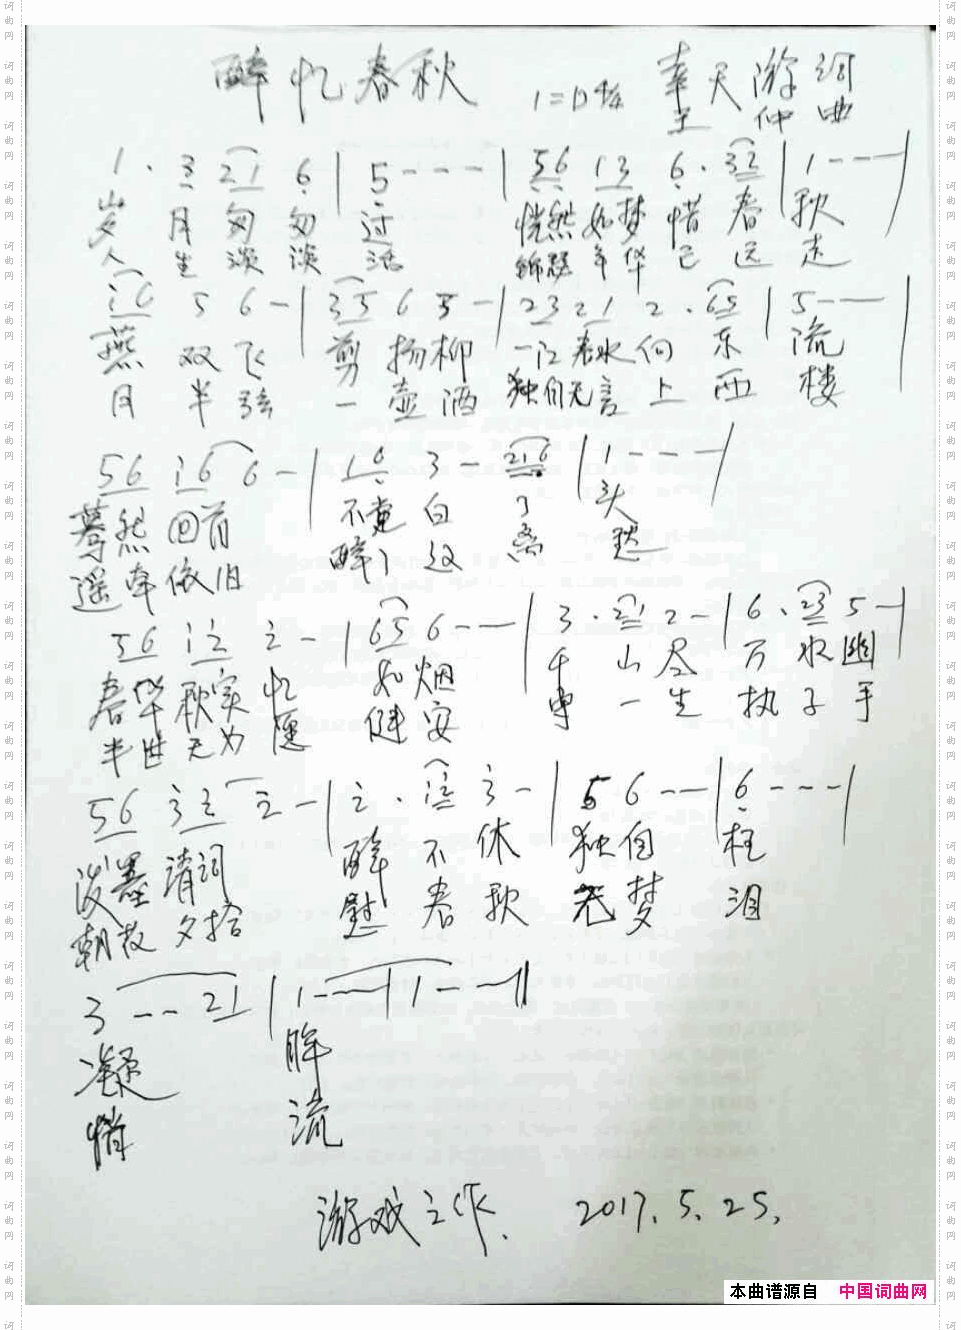 醉忆春秋 1=D 4/4 奉天游词
王仲曲
1 · 3 21 6 | 5 - - - | 56 13 6 · 32 | 1 - - - |
岁月匆匆过 恍然如梦惜春秋
人生淡淡活 锦瑟年华已远走
i6 5 6 - | 35 6 5 - | 23 21 2 · 65 | 5 - - - |
燕双飞 剪杨柳 一江春水向东流
月半弦 一壶酒 独自无言上西楼
56 i6 6 - | 1 6 3 - 216 | 1 - - - |
蓦然回首 不觉白了头
遥牵依旧 醉 离愁
56 i2 2 - | 65 6 - - | 3 · 21 2 - | 6 · 23 5 - |
春华秋实忆如烟 千山尽万水幽
半世无为 健安 一生执子手
56 32 2 - | 2 · i2 3 - | 5 6 - - | 6 - - - |
泼墨清词 醉不休 独自枉
朝 夕拾 慰春歌 梦泪
3 - - 21 | 1 - - - | 1 - - - ||
凝眸
情流
游戏之作. 2017.5.25.
本曲谱源自 中国词曲网
词曲网